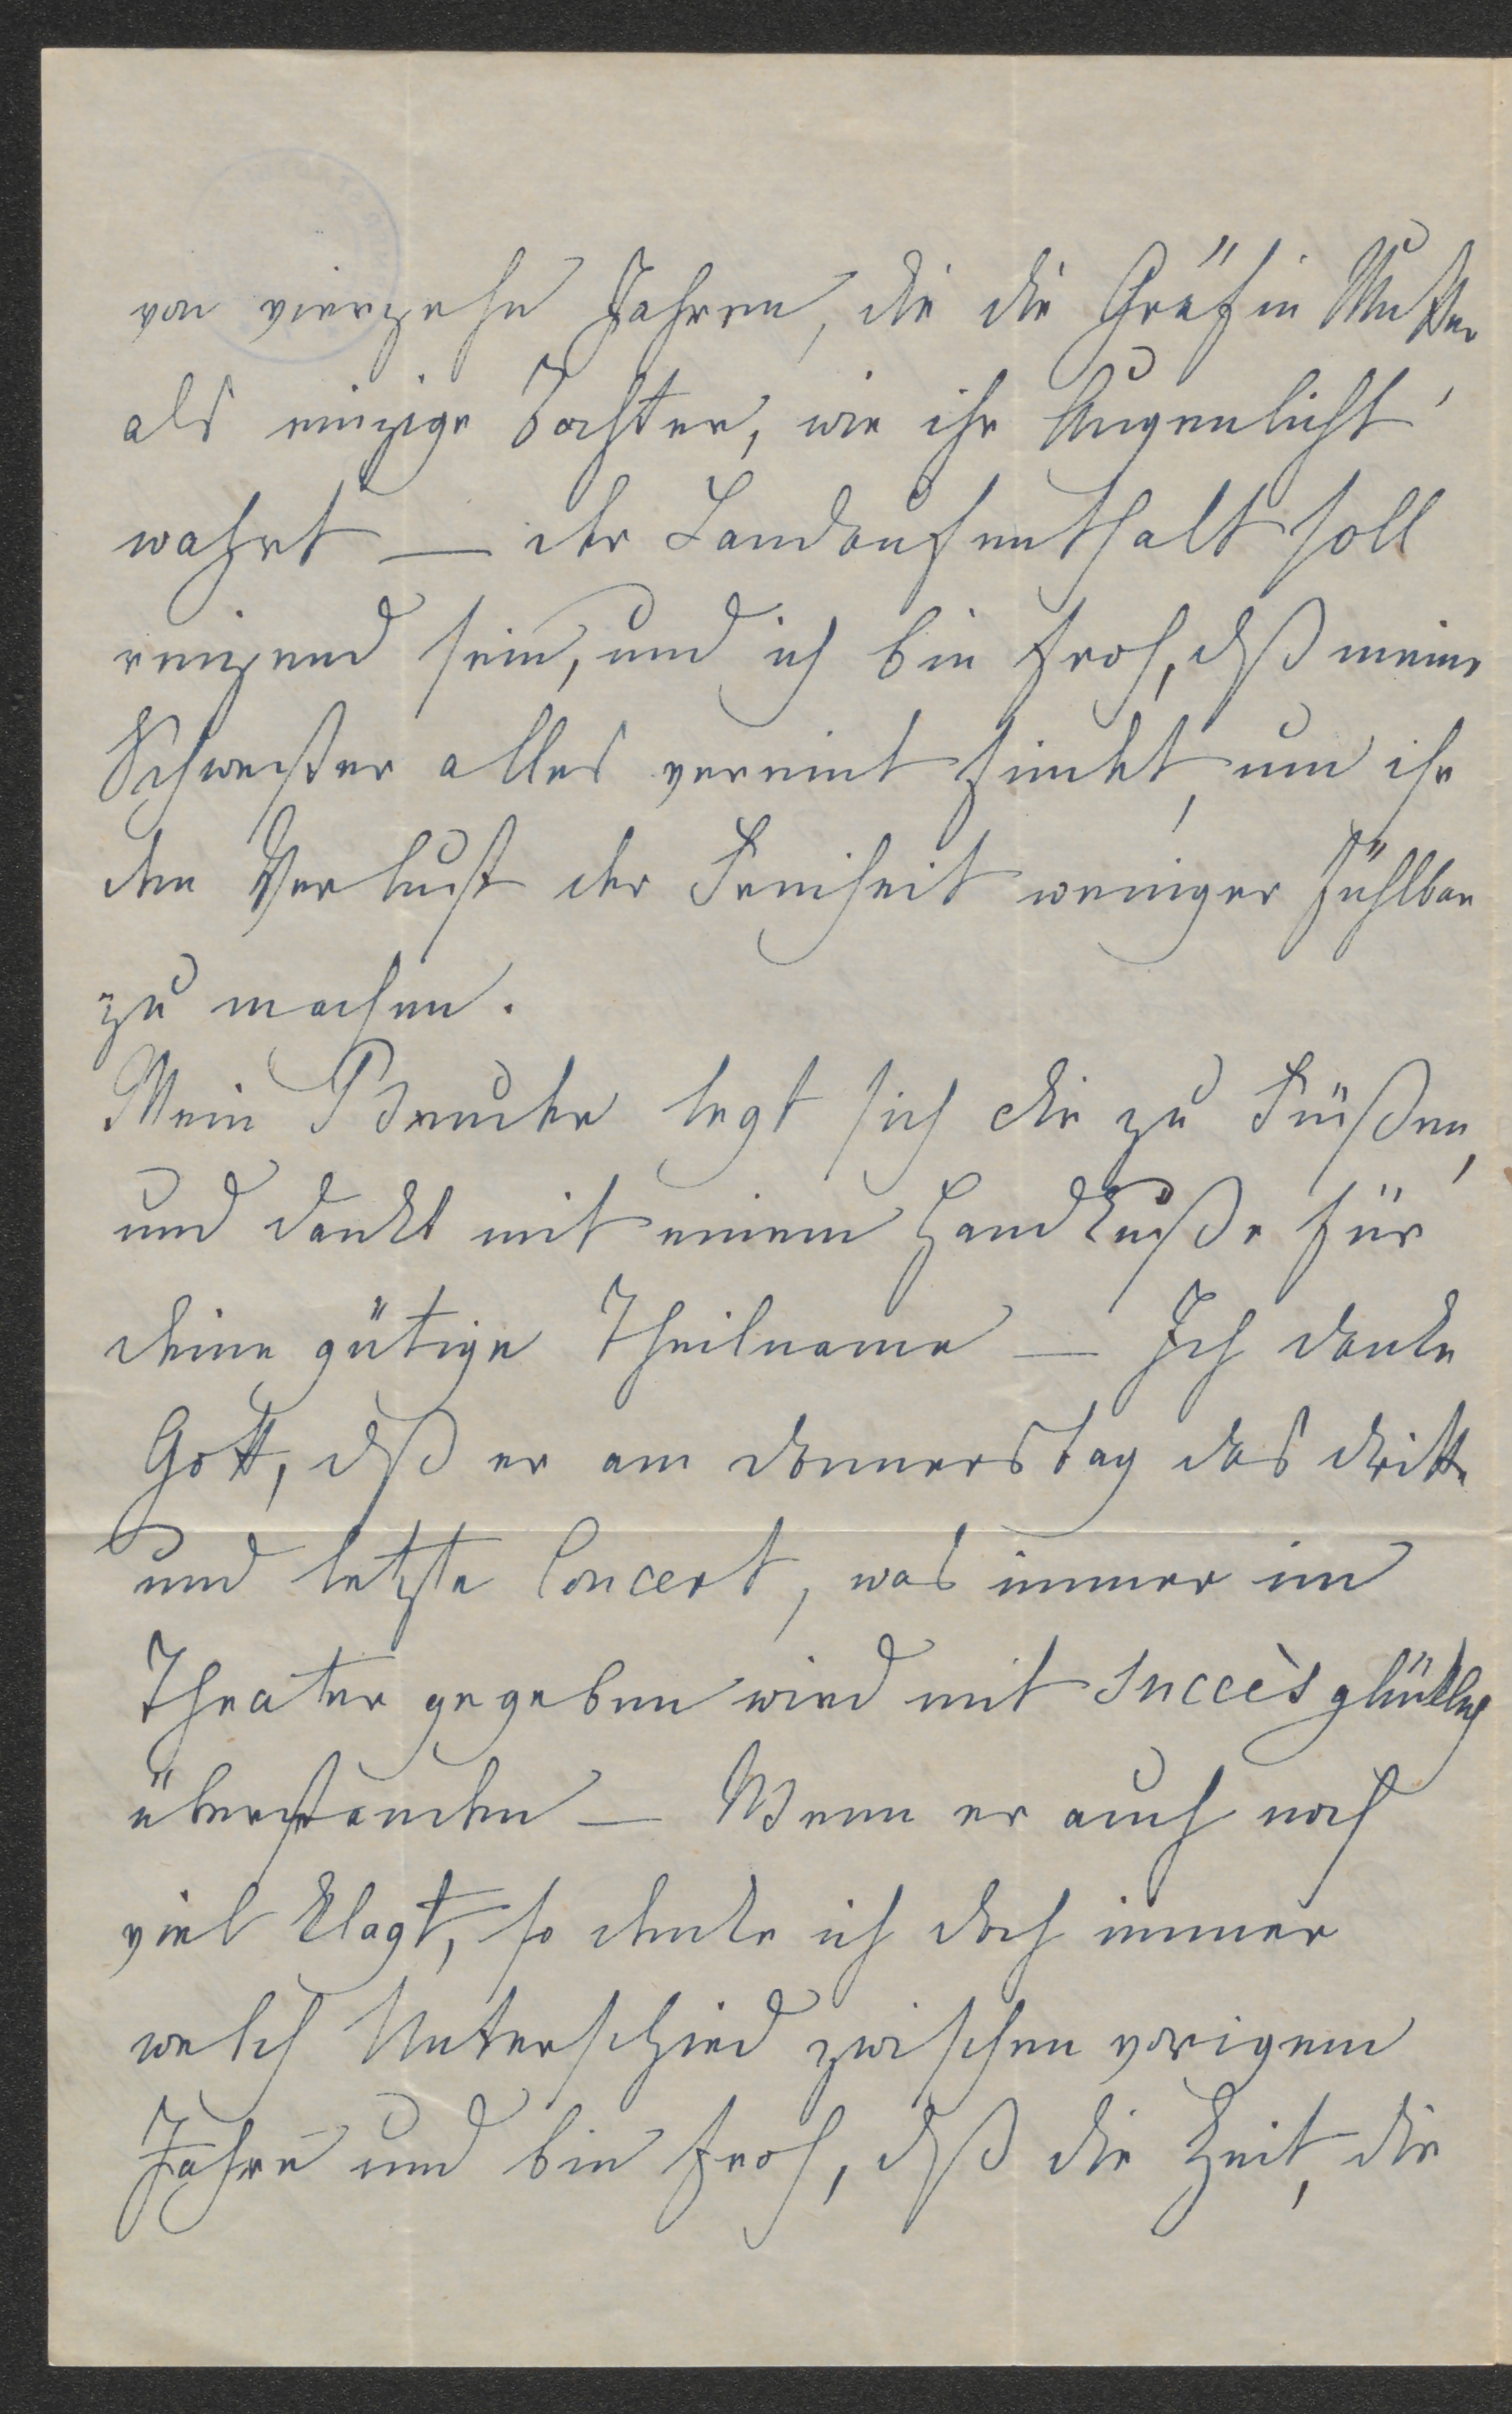 von vierzehn Jahren, die die Gräfin Mutter
als einzige Tochter, wie ihr Augenlicht
wahrt — der Landaufenthalt soll
reizend sein, und ich bin froh, dß meine
Schwester alles vereint findet, um ihr
den Verlust der Freiheit weniger fühlbar
zu machen.
Mein Bruder legt sich dir zu Füßen,
und dankt mit einem Handkuße für
deine gütige Theilname — Ich danke
Gott, dß er am Donnerstag das dritte
und letzte Concert, was immer im
Theater gegeben wird mit Succès glücklich
überstanden — Wenn er auch noch
viel klagt, so denke ich doch immer
welch Unterschied zwischen vorigem
Jahre und bin froh, dß die Zeit, die